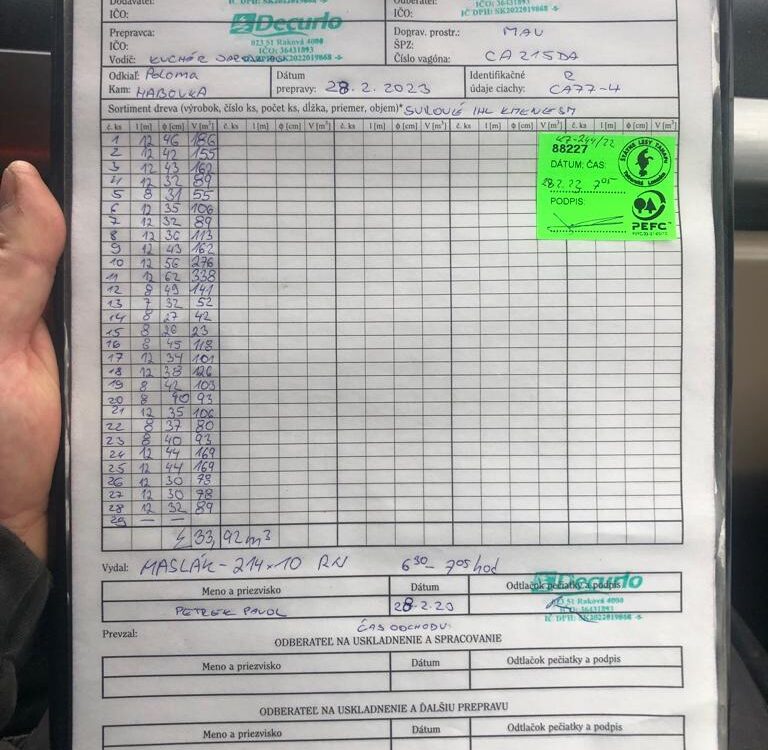 Dodávateľ:
IČO:
IČ DPH: SK2022019868
Odberateľ:
IČO: 36431893
IČO:
IČ DPH: SK2022019868
Prepravca:
Decurlo
023 51 Raková 4000
IČO:
IČO: 36431893
Vodič: KUCHÁR
Doprav. prostr.: MAU
ŠPZ:
Číslo vagóna: CA 215DA
Odkiaľ: Poloma
Kam: HABOVKA
Dátum
prepravy: 28.2.2023
Identifikačné R
údaje ciachy: CA77-4
Sortiment dreva (výrobok, číslo ks, počet ks, dĺžka, priemer, objem)* SUROVÉ IHL KMENE SM
č. ks l [m] ϕ [cm] V [m³] č. ks l [m] ϕ [cm] V [m³] č. ks l [m] ϕ [cm] V [m³] č. ks l [m] ϕ [cm] V [m³] č. ks l [m] ϕ [cm] V [m³]
1 12 46 186
2 12 42 155
3 12 43 162
4 12 32 89
5 8 31 55
6 12 35 106
7 12 32 89
8 12 36 113
9 12 43 162
10 12 56 276
11 12 62 338
12 8 49 141
13 7 32 52
14 8 27 42
15 8 20 23
16 8 45 118
17 12 34 101
18 12 38 126
19 8 42 103
20 8 40 93
21 12 35 106
22 8 37 80
23 8 40 93
24 12 44 169
25 12 44 169
26 12 30 78
27 12 30 78
28 12 32 89
29 — —
Σ 33,92 m³
88227
DÁTUM: ČAS:
28.2.23 7⁰⁵
PODPIS:
ŠTÁTNE LESY TANAPu
Tatranská Lomnica
PEFC
Vydal: MASLÁK - 214×10 RN 6³⁰ - 7⁰⁵ hod
Decurlo
023 51 Raková 4000
IČO: 36431893
IČ DPH: SK2022019868
Meno a priezvisko Dátum Odtlačok pečiatky a podpis
PETREK PAVOL 28.2.23
Prevzal:
ČAS ODCHODU:
ODBERATEĽ NA USKLADNENIE A SPRACOVANIE
Meno a priezvisko Dátum Odtlačok pečiatky a podpis
ODBERATEĽ NA USKLADNENIE A ĎALŠIU PREPRAVU
Meno a priezvisko Dátum Odtlačok pečiatky a podpis